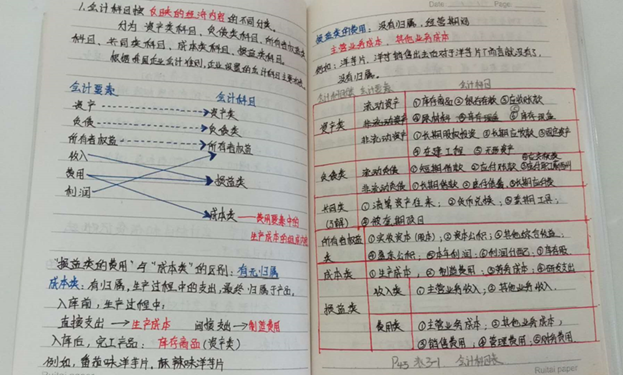 1.会计科目按反映的经济内容的不同分类。
分为资产类科目、负债类科目、所有者权益类
科目、共同类科目、成本类科目、损益类科目。
根据我国企业会计准则,企业设置的会计科目主要
会计要素 会计科目
资产 资产类
负债 负债类
所有者权益 所有者权益
收入
费用 损益类
利润
成本类 费用要素中的
生产成本的组成
"损益类的费用"与"成本类"的区别:有无归属
成本类:有归属,生产过程中的支出,最终归属于产出,
入库前,生产过程中:
直接支出→生产成本 间接支出→制造费用
入库后,完工产品:库存商品(资产类)
例如,番茄味洋芋片、麻辣味洋芋片
Date Page
损益类的费用:没有归属,经营期间
主营业务成本、其他业务成本
例如:洋芋片,洋芋销售出去也对于洋芋片厂而言就没有了,
没有归属。
会计要素 会计科目
资产类 流动资产 ①库存商品②银行存款③应收账款
④原材料
非流动资产 ①长期股权投资②长期应收款③固定资产
④在建工程⑤无形资产
负债类 流动负债 ①短期借款②应付账款
非流动负债 ①长期借款②应付债券③长期应付款
共同类 ①清算资产往来;②货币兑换;③套期工具;
④被套期项目
所有者权益 ①实收资本(股本);②资本公积;③其他综合收益;
类 ④盈余公积;⑤本年利润;⑥利润分配;⑦库存股
成本类 ①生产成本;②制造费用;③劳务成本;④研发支出
损益类 收入类 ①主营业务收入;②其他业务收入
费用类 ①主营业务成本;②其他业务成本;
③销售费用;④管理费用;⑤财务费用
P43 表3-1 会计科目表
Ruitai paper
Ruitai paper